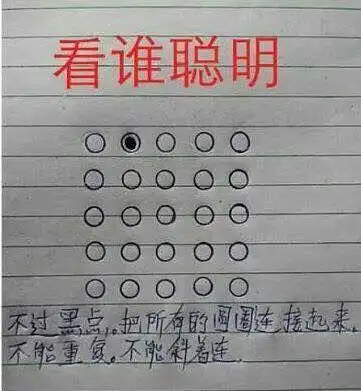 看谁聪明
不过黑点，把所有的圆圈连接起来，
不能重复。不能斜着连.